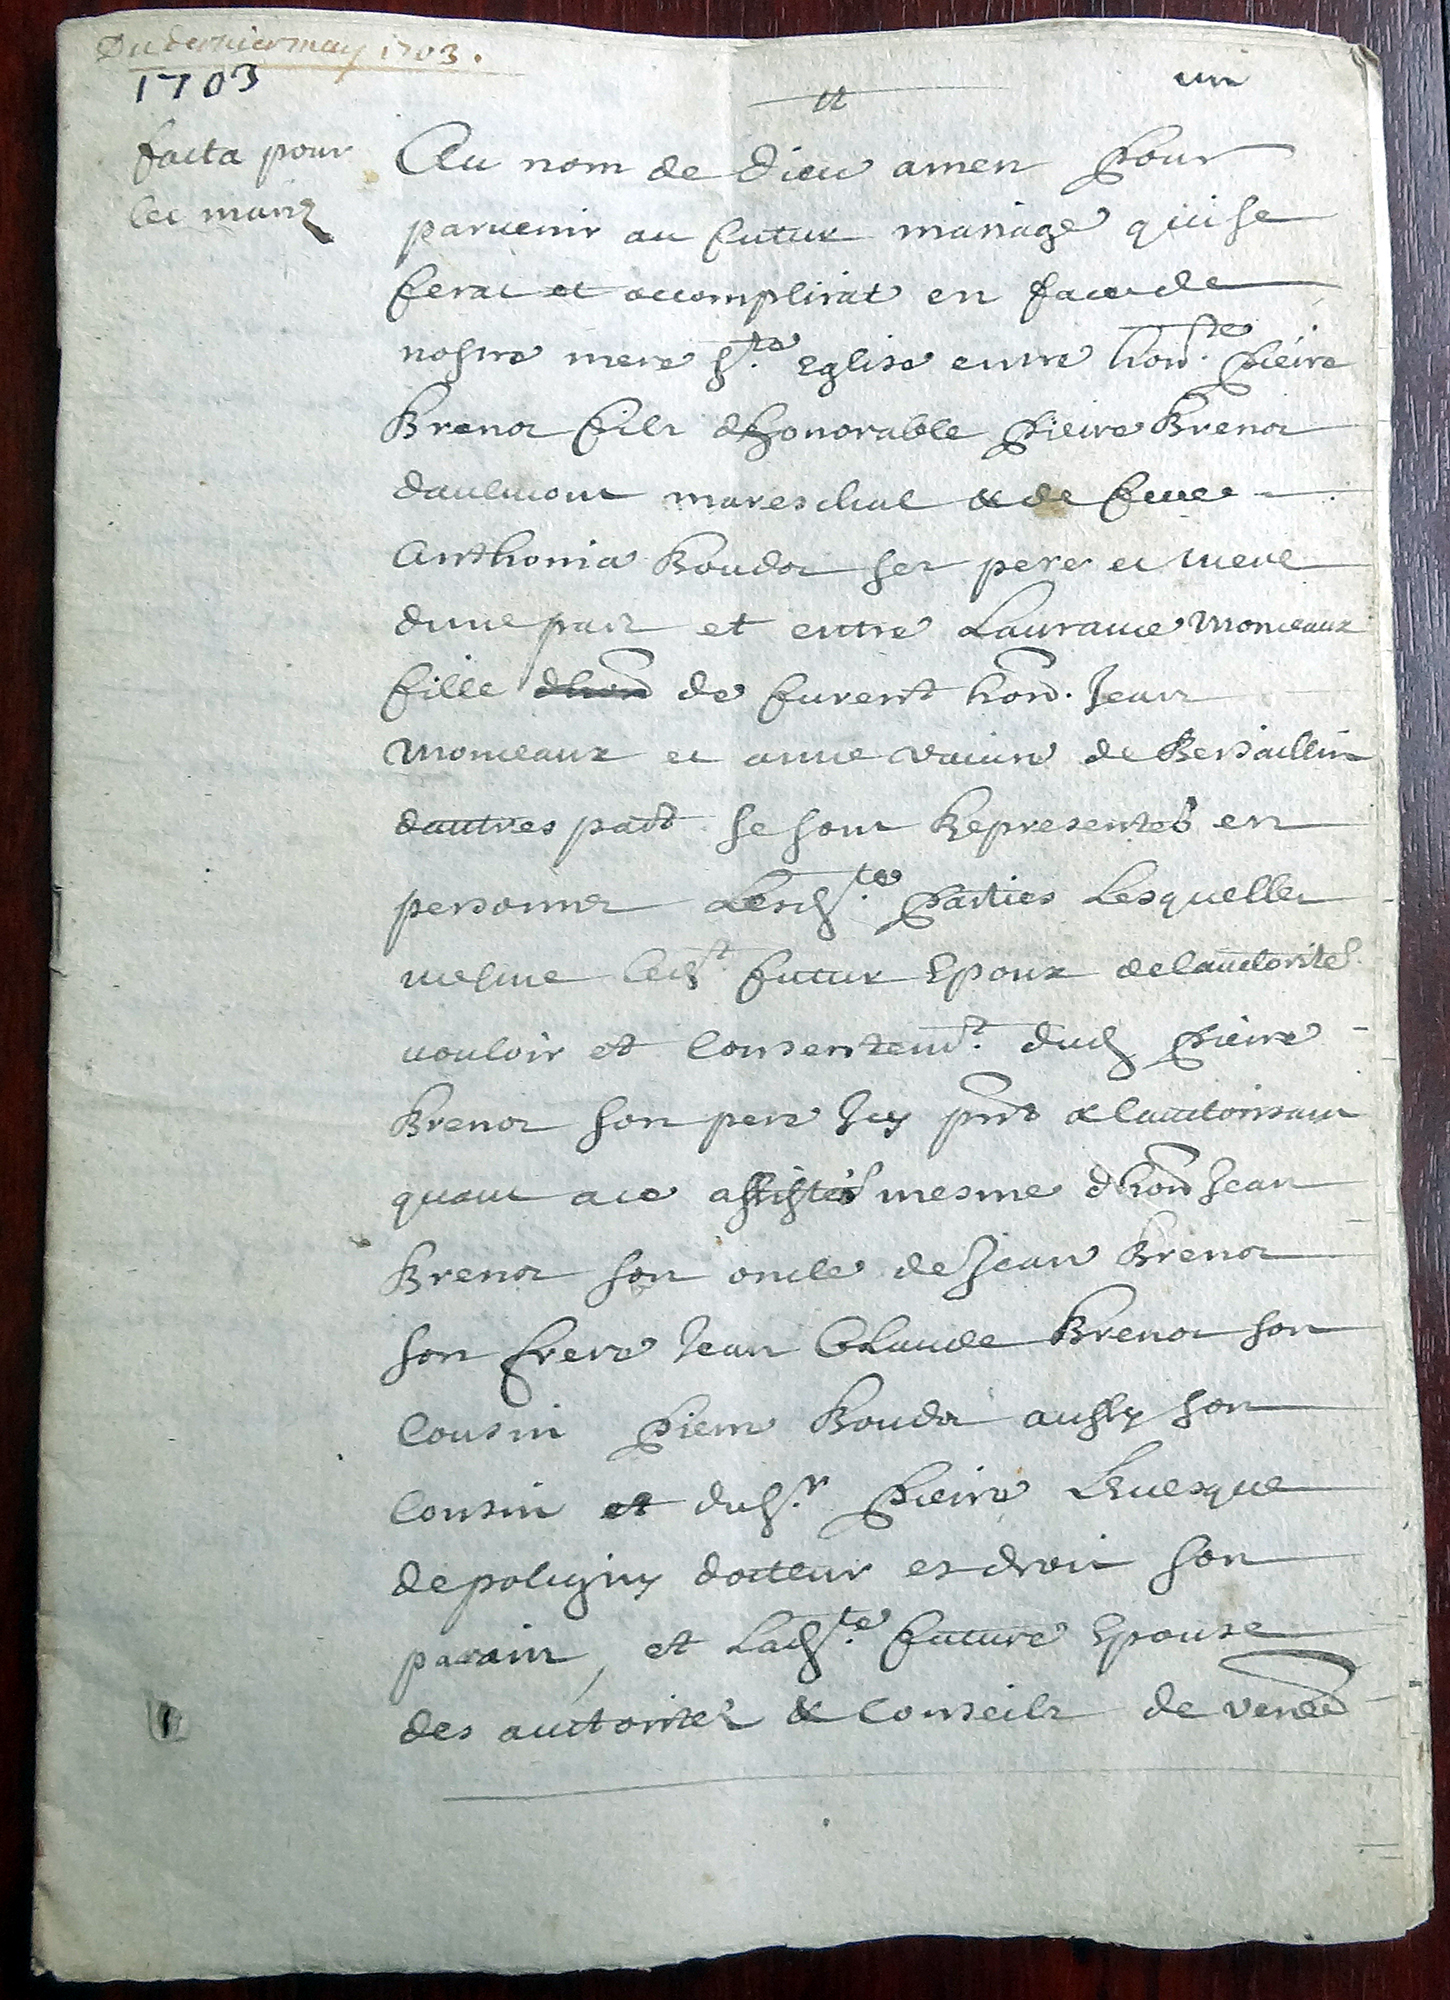 Du dernier may 1703.
1703
un
facta pour
les mariz
Au nom de Dieu amen Pour
parvenir au futur mariage qui se
ferat et accomplirat en face de
nostre mere s.te Eglise entre hon.ste Pieire
Brenot fils dhonorable Pieire Brenot
daulmont mareschal & de feue
Anthonia Boudot ses pere et mere
dune part et entre Laurance Monceaux
fille de furent hon. Jean
Monceaux et anne de Bersaillin
dautres part se sont Representés en
personnes Lesd.tes Parties Lesquelles
mesme Led.t futur Epoux de lauctorité
vouloir et Consentem.t dud Pieire
Brenot son pere Icy pnt & lauctorisant
quant a ce assisté mesme dhon Jean
Brenot son oncle de Jean Brenot
son frere Jean Claude Brenot son
Cousin Pierre Boudot aussy son
Cousin et du s.r Pieire Levesque
de poligny docteur es droit son
parain, et Lad.te future Epouse
des auctorités & Conseils de